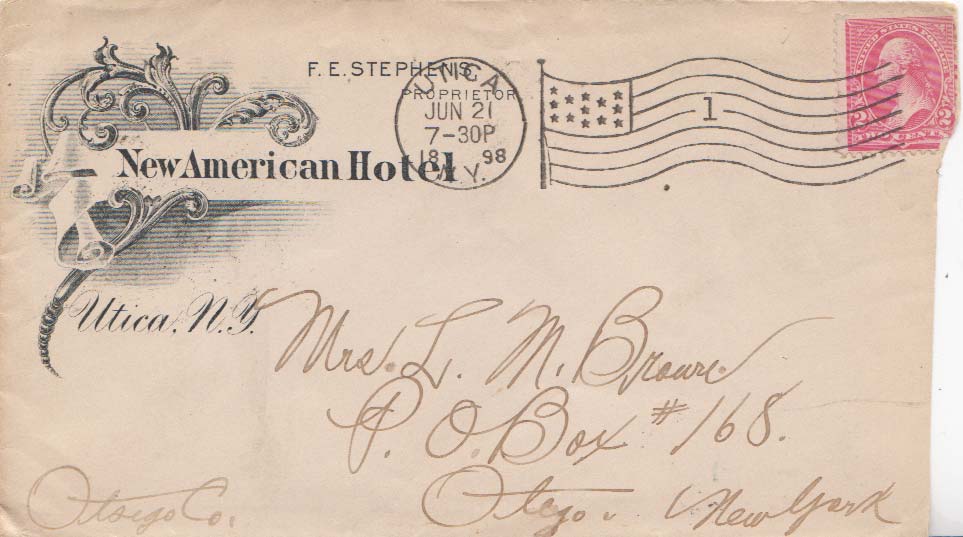 F. E. STEPHENS,
PROPRIETOR
New American Hotel
Utica, N.Y.
UTICA
JUN 21
7-30P
18 98
N.Y.
1
UNITED STATES POSTAGE
2 2
TWO CENTS
Mrs. L. M. Brown.
P. O. Box # 168.
Otego. New York
Otsego Co.